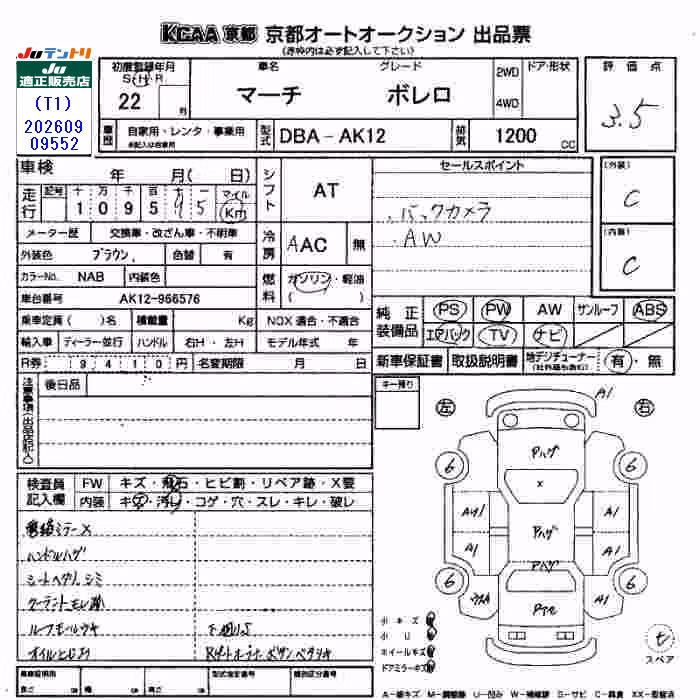 KCAA 京都 京都オートオークション 出品票
(赤枠内は必ず記入して下さい)
JUテントリ
JU
適正販売店
(T1)
202609
09552
初度登録年月
S・H・R
22 月
車名 グレード
マーチ ボレロ
2WD
4WD
ドア・形状
評価点
3.5
車歴 自家用・レンタ・事業用
未記入は自家用
型式 DBA-AK12
排気 1200 CC
車検 年 月( 日)
走行 記号 十 万 千 百 十 一 マイル
1 0 9 5 9 5 Km
メーター歴 交換車・改ざん車・不明車
外装色 ブラウン 色替 有
カラーNo. NAB 内装色
車台番号 AK12-966576
乗車定員 ( )名 積載量 Kg
NOX 適合・不適合
輸入車 ディーラー 並行 ハンドル 右H・左H
モデル年式 年
R券 9410円 名変期限 月 日
シフト AT
冷房 AAC 無
燃料 ガソリン・軽油
( )
セールスポイント
バックカメラ
AW
(外装)
C
(内装)
C
純正装備品
PS PW AW サンルーフ ABS
エアバック TV ナビ
新車保証書 取扱説明書 地デジチューナー 有・無
(社外品も含む)
注意事項(出品店記入)
後日品
キー残り
左 右
検査員記入欄
FW キズ・飛石・ヒビ割・リペア跡・X要
内装 キズ・汚れ・コゲ・穴・スレ・キレ・破レ
ミラーX
ハンドルハゲ
シートヘタリ、シミ
クーラントモレ跡
ルーフモールウキ
下廻りS
A1
Pハゲ
6 6
X
A1
A1 A1
Pハゲ
Pハゲ
6 6
A1
小キズ
小U
ホイールキズ
ドアミラーキズ
スペア
車両証明用
長さ cm 幅 cm 高さ cm
型式指定番号
類別区分番号
A-線キズ U-凹み W-補修跡 S-サビ